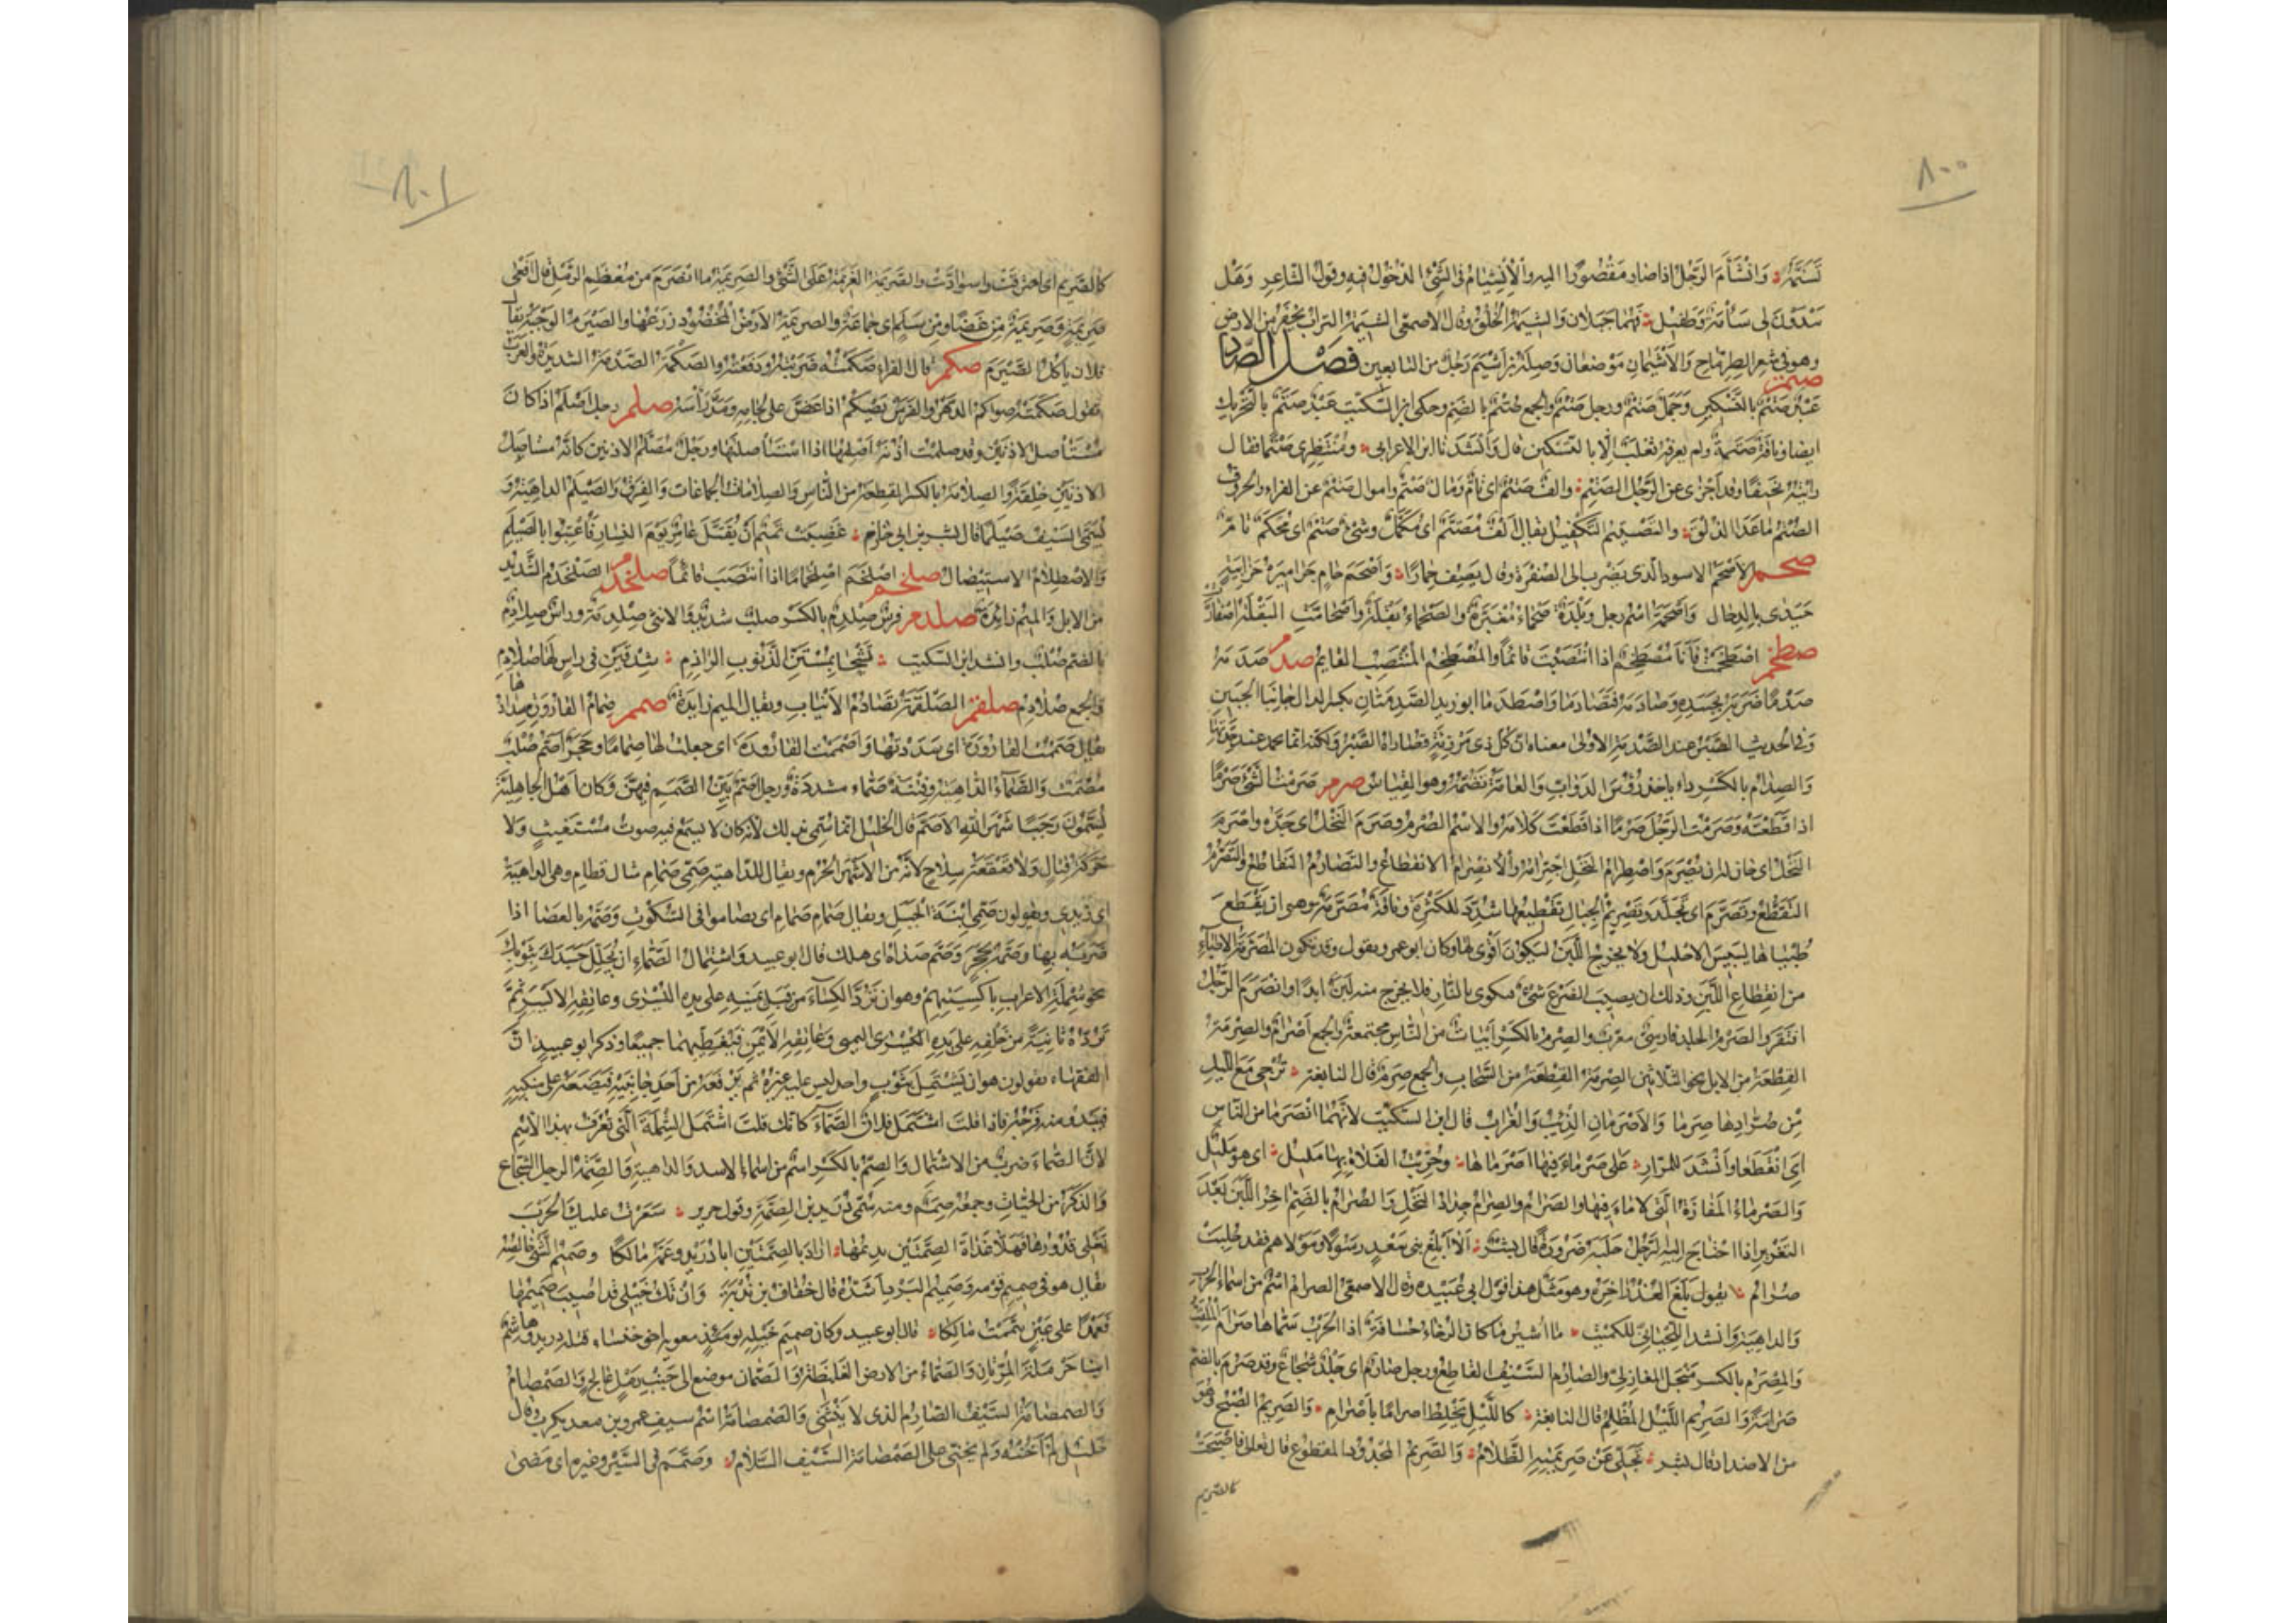 ٨٠٠
تشتمه وانشأم الرجل اذا صار مقصورا اليه والانشيام في الشئ الدخول فيه وقول الشاعر وهل
يبدون لي شامة وطفيل فهما جبلان والشيمة الخلق وقال الاصمعي الشيمة التراب يحفر من الارض
وهو في شعر الطرماح والاشيمان موضعان وصلة بن اشيم رجل من التابعين فصل الصاد
صتم
عبد صتم بالتسكين وجمل صتم ورجل صتم والجمع صتم بالضم وحكى ابن السكيت عبد صتم بالتحريك
ايضا وناقة صتمة ولم يعرفه ثعلب الا بالتسكين قال وانشدنا ابن الاعرابي ومنتظري صتما فقال
رايته نحيفا وقد اجزى عن الرجل الصتم والف صتم اي تام ومال صتم واموال صتم عن الفراء والحروف
الصتم ما عدا الذلق والتصتيم التكميل يقال الف مصتم اي مكمل وشئ صتم اي محكم تام
صحم الاصحم الاسود الذي يضرب الى الصفرة وقال يصف حمارا واصحم حام جراميزه حزابية
حيدى بالدحال واصحمة اسم رجل وبلدة صحماء مغبرة والصحماء بقلة واصحامت البقلة اصفارت
صطخم اصطخمت فانا مصطخم اذا انتصبت قائما والمصطخم المنتصب القايم صدم صدمه
صدما ضربه بجسده وصادمه فتصادما واصطدما ابو زيد الصدمتان بكسر الدال جانبا الجبين
وفي الحديث الصبر عند الصدمة الاولى معناه ان كل ذي مرزئة قصاراه الصبر ولكنه انما يحمد عند حدتها
والصدام بالكسر داء ياخذ رؤس الدواب والعامة تضمه وهو القياس صرم صرمت الشئ صرما
اذا قطعته وصرمت الرجل صرما اذا قطعت كلامه والاسم الصرم وصرم النخل اي جده واصرم
النخل اي حان له ان يصرم واصطرام النخل اجترامه والانصرام الانقطاع والتصارم التقاطع والتصرم
التقطع وتصرم اي تجلد وتصريم الحبال تقطيعها شدد للكثرة وناقة مصرمة وهو ان يقطع
طبياها ليبس الاحليل ولا يخرج اللبن ليكون اقوى لها وكان ابو عمرو يقول وقد تكون المصرمة الاطباء
من انقطاع اللبن وذلك ان يصيب الضرع شئ فيكوى بالنار فلا يخرج منه لبن ابدا وانصرم الرجل
افتقر والصرم الجلد فارسي معرب والصرم بالكسر ابيات من الناس مجتمعة والجمع اصرام والصرمة
القطعة من الابل نحو الثلاثين الصرمة القطعة من السحاب والجمع صرم قال النابغة تزجي مع الليل
من صرادها صرما والاصرمان الذئب والغراب قال ابن السكيت لانهما انصرما من الناس
اي انقطعا وانشد للمرار على صرماء فيها اصرماها وخريت الفلاة بها مليل اي هو مليل
والصرماء المفازة التي لا ماء فيها والصرام والصرام جداد النخل والصرام بالضم اخر اللبن بعد
التغزير اذا احتاج اليه الرجل حلبه ضرورة قال بشر الا ابلغ بني سعد رسولا ومولاهم فقد حلبت
صرام يقول بلغ العذر اخره وهو مثل هذا قول ابي عبيدة وقال الاصمعي الصرام اسم من اسماء الحرب
والداهية وانشد اللحياني للكميت ما اشير ما كان الرخاء حسافة اذا الحرب سماها صرام الملقب
والمصرم بالكسر منجل المغازلي والصارم السيف القاطع ورجل صارم اي جلد شجاع وقد صرم بالضم
صرامة والصريم الليل المظلم قال النابغة كالليل يخلط اصراما باصرام والصريم الصبح وهو
من الاضداد قال بشر تجلى عن صريمته الظلام والصريم المجدود المقطوع قال تعالى فاصبحت
كالصريم
٨٠١
كالصريم اي احترقت واسوادت والصريمة العزيمة على الشئ والصريمة ما انصرم من معظم الرمل قال افعى
صريمة وصريمة من غضا ومن سلم اي جماعة والصريمة الارض المحصود زرعها والصيرم الوجبة يقال
فلان ياكل الصيرم صكم قال الفراء صكمته ضربته ودفعته والصكمة الصدمة الشديدة والعرب
تقول صكمته صواكم الدهر والفرس يصكم اذا عض على لجامه ومد رأسه صلم رجل اصلم اذا كان
مستأصل الاذنين وقد صلمت اذنه اصلمها اذا استأصلتها ورجل مصلم الاذنين كانه مستاصل
الاذنين خلقة والصلامة بالكسر القطعة من الناس والصلامات الجماعات والفرق والصيلم الداهية و
يسمى السيف صيلما قال بشر بن ابي خازم غضبت تميم ان يقتل عامر يوم النسار فاعتبوا بالصيلم
والاصطلام الاستيصال صلخم اصلخم اصلخماما اذا انتصب قائما صلخدم الصلخدم الشديد
من الابل والميم زائدة صلدم فرس صلدم بالكسر صلب شديد والانثى صلدمة وراس صلادم
بالضم صلب وانشد ابن السكيت تشحى بمستن الذنوب الراذم شدقين في راس لها صلادم
والجمع صلادم صلقم الصلقمة تصادم الانياب ويقال الميم زايدة صمم صمام القارورة سدادها
يقال صممت القارورة اي سددتها واصممت القارورة اي جعلت لها صماما وحجر اصم صلب
مصمت والصماء الداهية وفتنة صماء شديدة ورجل اصم بين الصمم فيهن وكان اهل الجاهلية
يسمون رجبا شهر الله الاصم قال الخليل انما سمي بذلك لانه كان لا يسمع فيه صوت مستغيث ولا
حركة قتال ولا قعقعة سلاح لانه من الاشهر الحرم ويقال للداهية صمي صمام مثال قطام وهي الداهية
اي زيدي ويقولون صمي ابنة الجبل ويقال صمام صمام اي تصاموا في السكوت وصمه بالعصا اذا
ضربه بها وصمه بحجر وصم صداه اي هلك قال ابو عبيد واشتمال الصماء ان تجلل جسدك بثوبك
نحو شملة الاعراب باكسيتهم وهو ان ترد الكساء من قبل يمينه على يده اليسرى وعاتقه الايسر ثم
ترده ثانية من خلفه على يده اليمنى وعاتقه الايمن فيغطيهما جميعا وذكر ابو عبيد ان
الفقهاء يقولون هو ان يشتمل بثوب واحد ليس عليه غيره ثم يرفعه من احد جانبيه فيضعه على منكبيه
فيبدو منه فرجه فاذا قلت اشتمل فلان الصماء كانك قلت اشتمل الشملة التي تعرف بهذا الاسم
لان الصماء ضرب من الاشتمال والصم بالكسر اسم من اسماء الاسد والداهية والصمة الرجل الشجاع
والذكر من الحيات وجمعه صمم ومنه سمي دريد بن الصمة وقول جرير سعرت عليك الحرب
تغلى قدورها فهلا غداة الصمتين تديمها اراد بالصمتين ابا دريد وعمه مالكا وصميم الشئ خالصه
يقال هو في صميم قومه وصميم البرد اشده قال خفاف بن ندبة وان تك خيلي قد اصيب صميمها
فعمدا على عين تيممت مالكا قال ابو عبيد وكان صميم خيله يومئذ معوية اخو خنساء قتله دريد وهاشم
ابنا حرملة المريان والصماء من الارض الغليظة والصمان موضع الى جنب رمل عالج والصمصام
والصمصامة السيف الصارم الذي لا ينثني والصمصامة اسم سيف عمرو بن معد يكرب وقال
خليل لم اخنه ولم يخني على الصمصامة السيف السلام وصمم في السير وغيره اي مضى